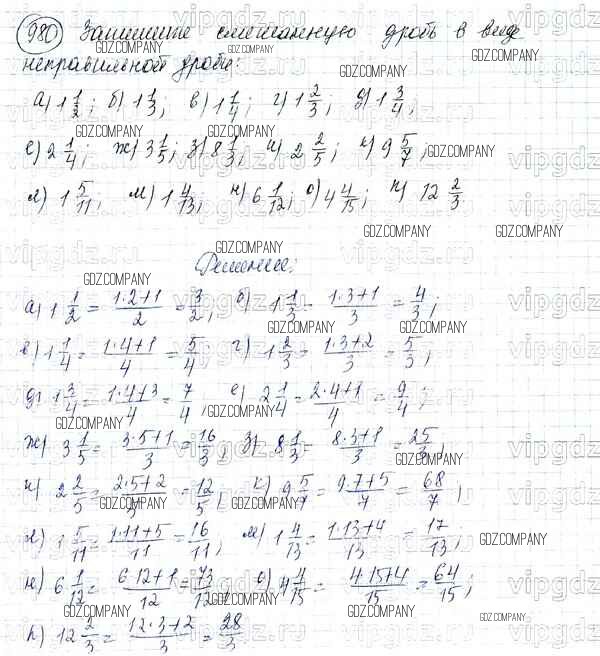 980 Запишите смешанную дробь в виде
неправильной дроби:
а) 1 1/2; б) 1 1/3; в) 1 1/4; г) 1 2/3; д) 1 3/4;
е) 2 1/4; ж) 3 1/5; з) 8 1/3; и) 2 2/5; к) 9 5/7;
л) 1 5/11; м) 1 4/13; н) 6 1/12; о) 4 4/15; п) 12 2/3.
Решение:
а) 1 1/2 = (1·2+1)/2 = 3/2; б) 1 1/3 = (1·3+1)/3 = 4/3;
в) 1 1/4 = (1·4+1)/4 = 5/4; г) 1 2/3 = (1·3+2)/3 = 5/3;
д) 1 3/4 = (1·4+3)/4 = 7/4; е) 2 1/4 = (2·4+1)/4 = 9/4;
ж) 3 1/5 = (3·5+1)/3 = 16/3; з) 8 1/3 = (8·3+1)/3 = 25/3;
и) 2 2/5 = (2·5+2)/5 = 12/5; к) 9 5/7 = (9·7+5)/7 = 68/7;
л) 1 5/11 = (1·11+5)/11 = 16/11; м) 1 4/13 = (1·13+4)/13 = 17/13;
н) 6 1/12 = (6·12+1)/12 = 73/12; о) 4 4/15 = (4·15+4)/15 = 64/15;
п) 12 2/3 = (12·3+2)/3 = 28/3.
GDZ.COMPANY
vipgdz.ru